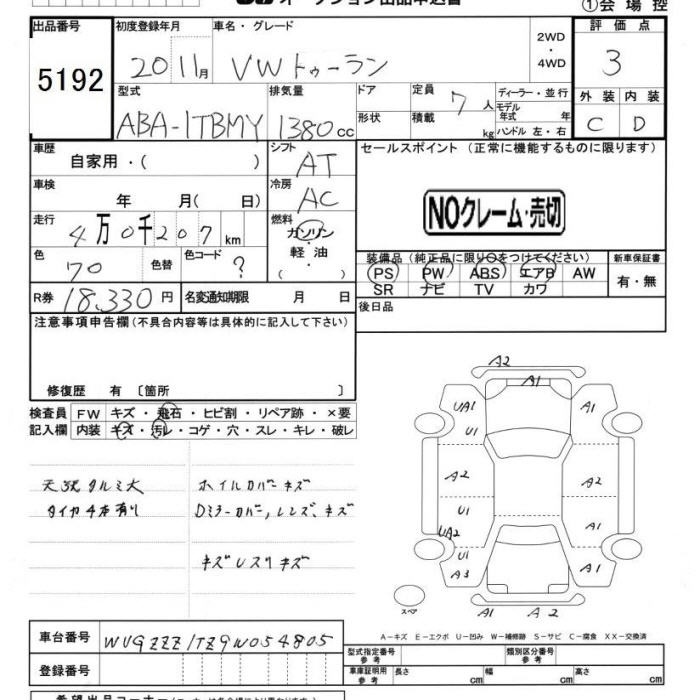 オークション出品申込書
①会場控
出品番号 初度登録年月 車名・グレード 2WD・4WD 評価点
5192 2011月 VWトゥーラン 3
型式 排気量 ドア 定員 7人 ディーラー・並行 外装 内装
モデル年式 年
ABA-1TBMY 1380cc 形状 積載 kg ハンドル 左・右 C D
車歴 シフト セールスポイント(正常に機能するものに限ります)
自家用・( ) AT
車検 冷房
年 月( 日) AC
NOクレーム・売切
走行 燃料
4万0千207km ガソリン・軽油
( ・ )
色 色替 色コード 装備品(純正品に限り○をつけてください) 新車保証書
70 ? PS PW ABS エアB AW 有・無
SR ナビ TV カワ
R券 18,330円 名変通知期限 月 日 後日品
注意事項申告欄(不具合内容等は具体的に記入して下さい)
修復歴 有 〔箇所 〕
検査員 FW キズ・飛石・ヒビ割・リペア跡・×要
記入欄 内装 キズ・汚レ・コゲ・穴・スレ・キレ・破レ
天張タルミ大 ホイルカバーキズ
タイヤ4本有り Dミラーカバー,レンズ、キズ
A2
A1
UA1 A1
U1
A2 A2
U1
UA2 A1
U1
A3 A1
スペア
A1 A2
A-キズ E-エクボ U-凹み W-補修跡 S-サビ C-腐食 XX-交換済
車台番号 WVGZZZ1TZ9W054805
型式指定番号 参考 類別区分番号 参考
登録番号 車庫証明用 参考 長さ cm 幅 cm 高さ cm